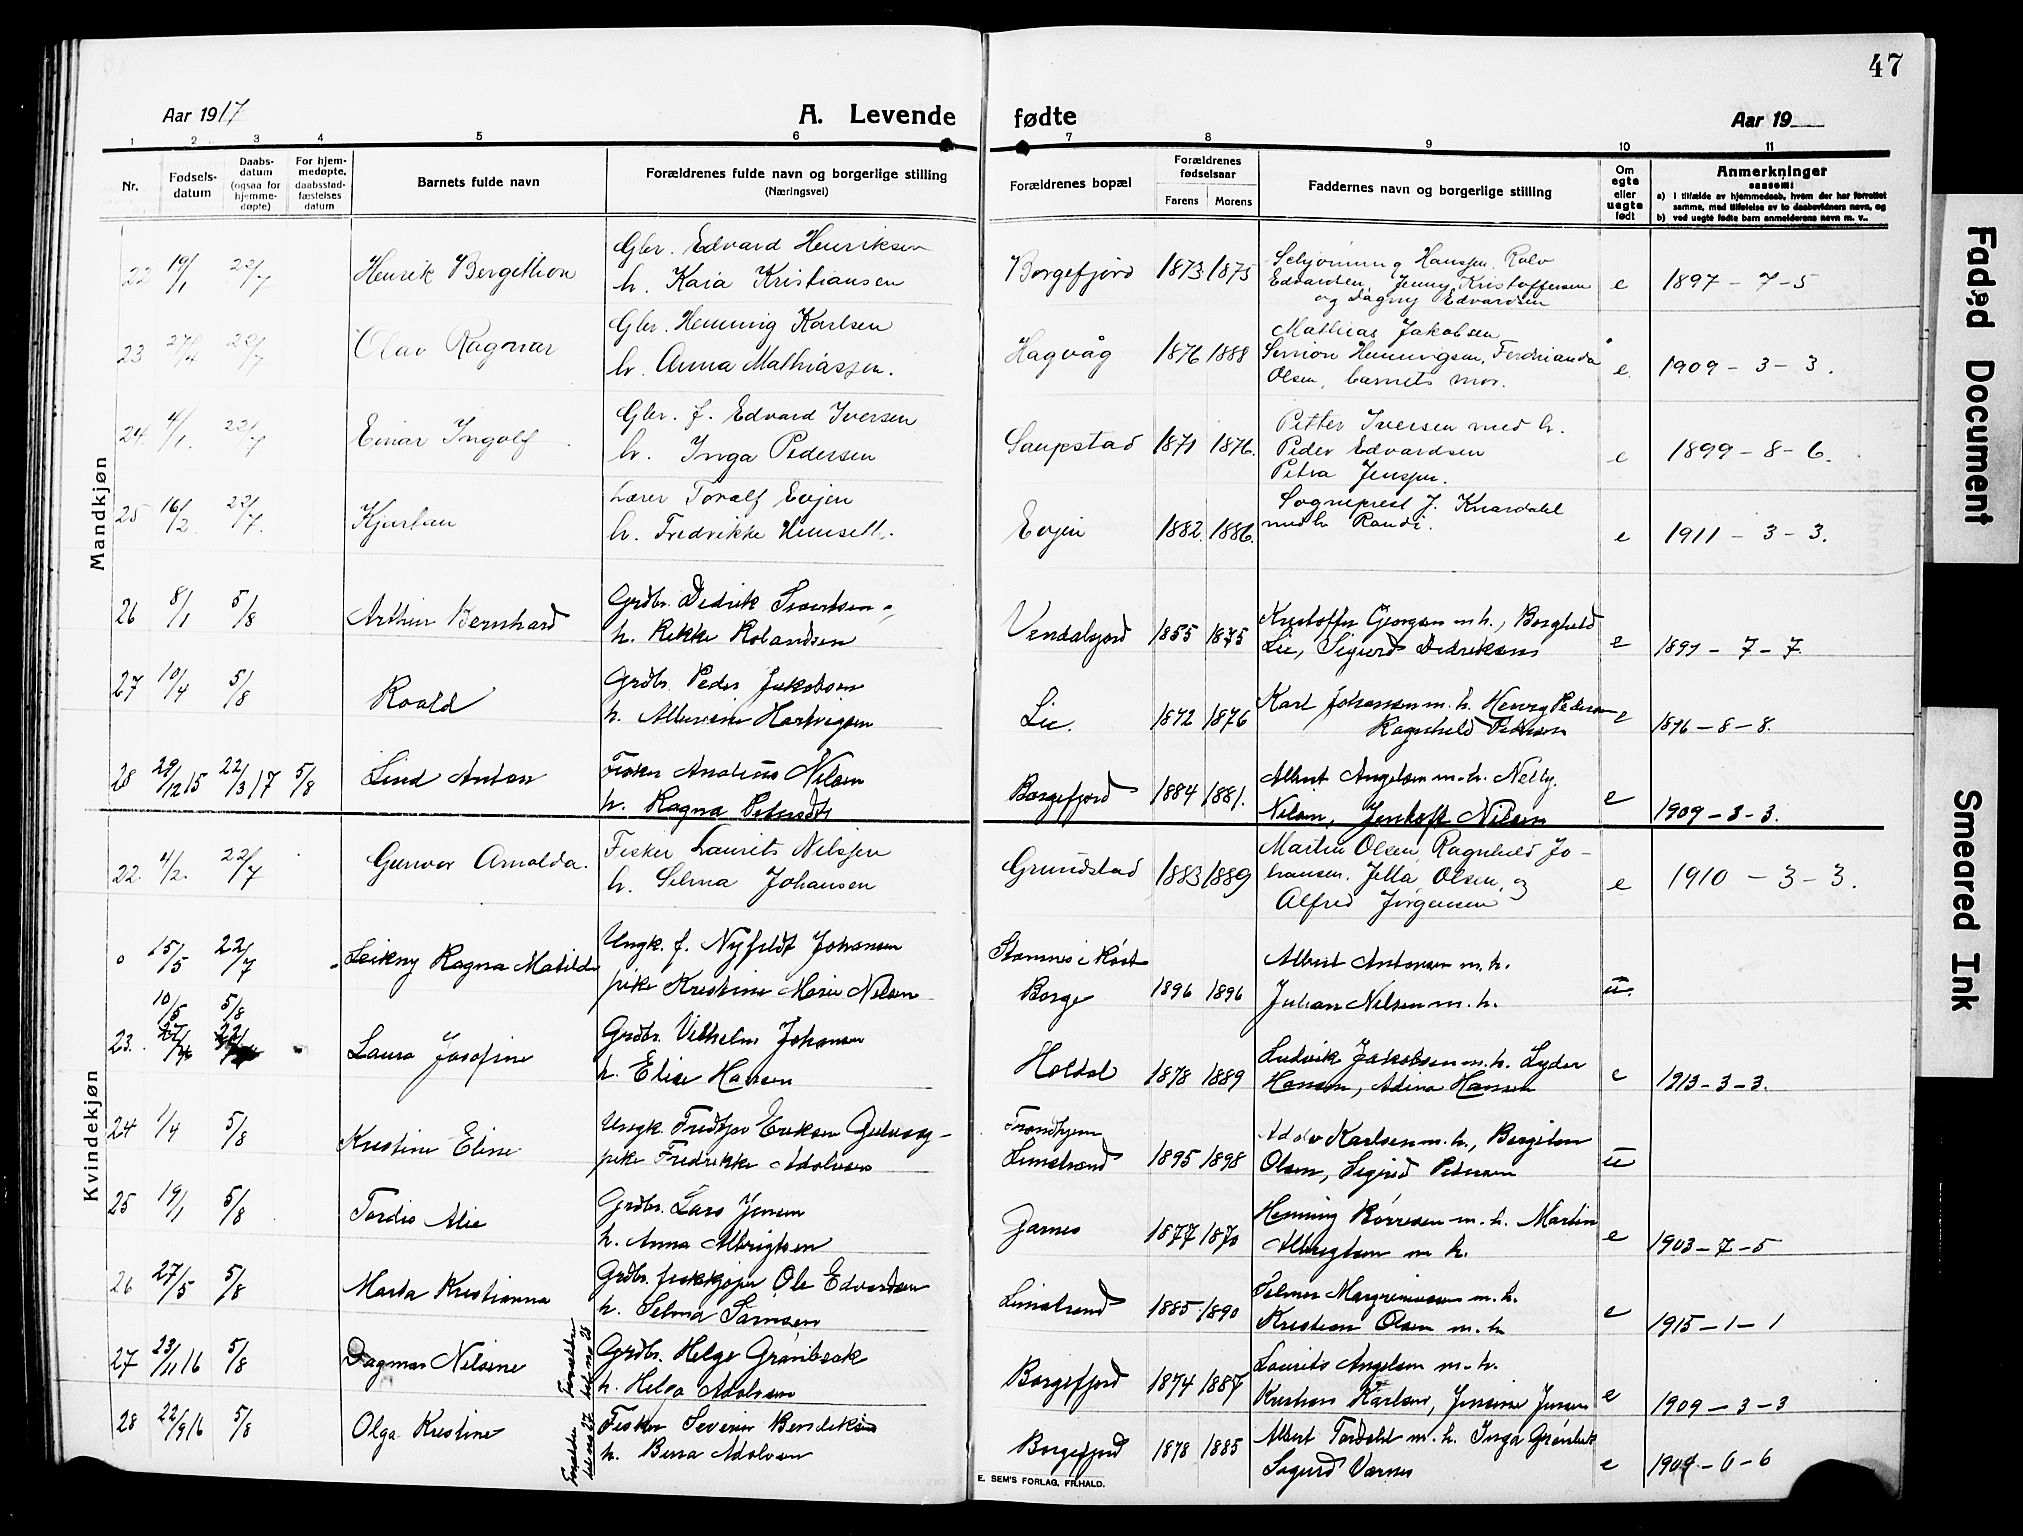 47
Aar 1917
A. Levende fødte
Aar 19
1 2 3 4 5 6 7 8 9 10 11
Nr.
Fødsels-
datum
Daabs-
datum
(ogsaa for
hjemme-
døpte)
For hjem-
medøpte,
daabsstad-
fæstelses
datum
Barnets fulde navn
Forældrenes fulde navn og borgerlige stilling
(Næringsvei)
Forældrenes bopæl
Forældrenes
fødselsaar
Farens Morens
Faddernes navn og borgerlige stilling
Om
egte
eller
uegte
født
Anmerkninger
saasom:
a) i tilfælde av hjemmedaab, hvem der har forrettet
samme, med tilføielse av to daabsvidners navn, og
b) ved uegte fødte barn anmelderens navn m. v..
Mandkjøn
22 19/1 22/7 Henrik Bergithon
Gbr. Edvard Henriksen
h. Kaia Kristiansen
Borgefjord 1873 1875
Schjønning Hanssen, Rolv
Edvardsen, Jenny Kristoffersen
og Dagny Edvardsen
e 1897 - 7 - 5
23 27/4 22/7 Olav Ragnvar
Gbr. Henning Karlsen
h. Anna Mathiassen.
Hagvåg 1876 1888
Mathias Jakobsen
Simon Henningsen, Ferdinanda
Olsen, barnets mor.
e. 1909 - 3 - 3.
24 4/1. 22/7 Einar Ingolf
Gbr. f. Edvard Iversen
h. Inga Pedersen
Saupstad 1871 1876.
Petter Iversen med h.
Peder Edvardsen
Petra Jenssen.
e 1899 - 8 - 6.
25 16/2. 22/7. Kjartan
Lærer Toralf Evjen
h. Fredrikke
Evjen 1882. 1886.
Sogneprest J. Knardahl
med h Randi.
e 1911 - 3 - 3.
26 8/1 5/8 Arthur Bernhard
Grdbr. Didrik Sivertsen
h. Rikke Rolandsen
Vendalsjord 1855 1875
Kristoffer Georgsen m. h., Borghild
Lie, Sigurd Didriksen
e 1897 - 7 - 7.
27 10/4 5/8 Roald
Grdbr. Peder Jakobsen
h. Albertine Hartvigsen
Lie. 1872 1876
Karl Johansen m. h. Henry Pedersen
Ragnhild Pedersen
e 1896 - 8 - 8.
28 29/12 15 22/3 17 5/8 Lind Anton
Fisker Analius Nilsen
h. Ragna
Borgefjord 1884 1881.
Albert Angelsen m. h. Nelly
Nilsen, Jentoft Nilsen
e 1909 - 3 - 3.
Kvindekjøn
22. 4/2. 22/7 Gunvor Arnolda.
Fisker Laurits Nilssen
h. Selma Johansen
Grundstad 1883 1889
Martin Olsen, Ragnhild Jo-
hansen, Jetta Olsen, og
Alfred Jørgensen
e 1910 - 3 - 3.
0 15/5 22/7 Leikny Ragna Matilde
Ungk. f. Nyfeldt Johansen
pike Kristine Marie Nilsen
Stamnes i Røst
Borge 1896 1896
Albert Antonsen m. h.
Julian Nilsen m. h.
u.
10/5 5/8
23. 27/ 22/ Laura Josefine
Grdbr. Vilhelm Johansen
h. Elise Hansen
Holdal 1878 1889
Ludvik Jakobsen m. h. Lyder
Hansen, Adina Hansen
e 1913 - 3 - 3.
24 1/4 5/8 Kristine Eline
Ungk. Fridtjov Eriksen
pike Fredrikke Adolvsen
Trondhjem
Limstrand 1895 1898
Karlsen m. h., Bergiton
Olsen, Sigrid Pedersen
u
25 19/1 5/8 Tordis Alie
Grdbr. Lars Jensen
h. Anna Albrigtsen
Jarnes 1877 1870
Henning Børresen m. h. Martin
Albrigtsen m h.
e 1903 - 7 - 5
26 27/5 5/8 Marta Kristianna
Grdbr. fiskekjøper Ole Edvardsen
h. Selma Samsen
Limstrand 1885 1890
Selmer m. h.
Kristian Olsen m. h
e 1915 - 1 - 1
27 23/11 16 5/8 Dagmar Nilsine
Grdbr. Helge Grønbæk
h. Helga Adolvsen
Borgefjord 1874 1887
Laurits Angelsen m. h.
Kristian Karlsen, Jensine Jensen
e 1909 - 3 - 3
28 22/9 16 5/8 Olga Kristine
Fisker Severin Bendiksen
h. Berra Adolvsen
Borgefjord 1878 1885
Albert Tordahl m. h. Inga Grønbæk
Sigurd Varnes
e 1907 - 6 - 6
E. SEM'S FORLAG, FR.HALD.
Faded Document
Smeared Ink